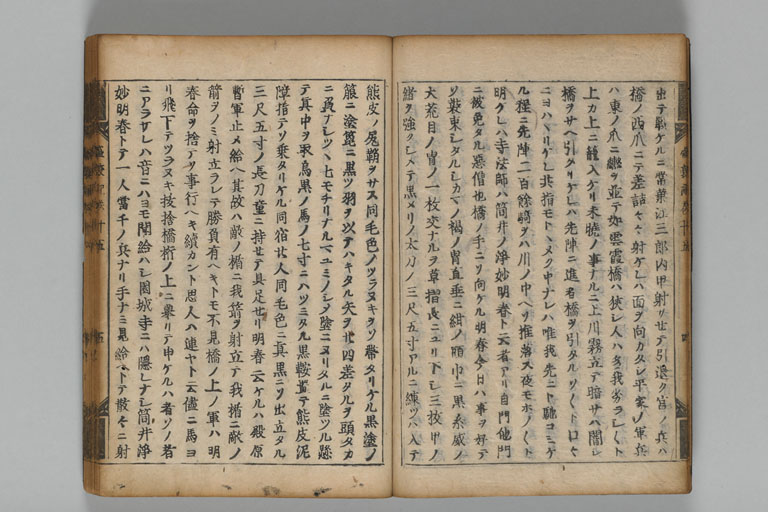 出テ戦ケルニ常葉江三郎内甲射サセテ引退ク宮ノ兵ハ
橋ノ西爪ニテ差詰々々射ケレハ面ヲ向カタシ平家ノ軍兵
ハ東ノ爪ニ轡ヲ並テ如雲霞橋ハ狭シ人ハ多我劣ラシ〱ト
上カ上ニ籠入ケリ未暁ノ事ナルニ上川霧立テ暗サハ闇シ
橋ヲサヘ引タリケレハ先陣ニ進者橋ヲ引タルソ〱ト口々
ニヨハヽリケレ共指モトヽメク中ナレハ唯我先ニト聴コミケ
ル程ニ先陣二百余騎ヲハ川ノ中ヘソ推落ス夜モホノ〱ト
明ケレハ寺法師ハ筒井ノ浄妙明春ト云者アリ自門他門
ニ被免タル悪僧也橋ノ手ニソ向ケル明春今日ハ事ヲ好テ
ソ装束シタルシカマノ褐ノ冑直垂ニ紺ノ頭巾ニ黒糸威ノ
大荒目ノ冑ノ一枚交ナルヲ草摺長ニユリ下シ三枚甲ノ
緒ヲ強クシメテ黒メリノ太刀ノ三尺五寸アルニ練ツハ入テ
熊皮ノ尻鞘ヲサス同毛色ノツラヌキヲソ帯タリケル黒塗ノ
箙ニ塗箆ニ黒ツ羽ヲ以テハキタル矢ヲ廿四差タルヲ頭タカ
ニ負ナシツヽ七モチリナルマユミノシメ塗ニヌリタルニ塗ツル懸
テ其中ヲ取烏黒ノ馬ノ七寸ニハツミタル黒鞍置テ熊皮泥
障指テソ乗タリケル同宿廿人同毛色ニ真黒ニソ出立タル
三尺五寸ノ長刀童ニ持セテ具足セリ明春云ケルハ殿原
暫軍止メ給ヘ其故ハ敵ノ楯ニ我箭ヲ射立テ我楯ニ敵ノ
箭ヲノミ射立ラレテ勝負有ヘキトモ不見橋ノ上ノ軍ハ明
春命ヲ捨テソ事行ヘキ続カント思人ハ連ヤト云儘ニ馬ヨ
リ飛下テツラヌキ抜捨橋桁ノ上ニ挙リテ申ケルハ者ソノ若
ニアラサレハ音ニハヨモ聞給ハシ園城寺ニハ隠レナシ筒井浄
妙明春トテ一人当千ノ兵ナリ手ナミ見給ヘトテ散々ニ射